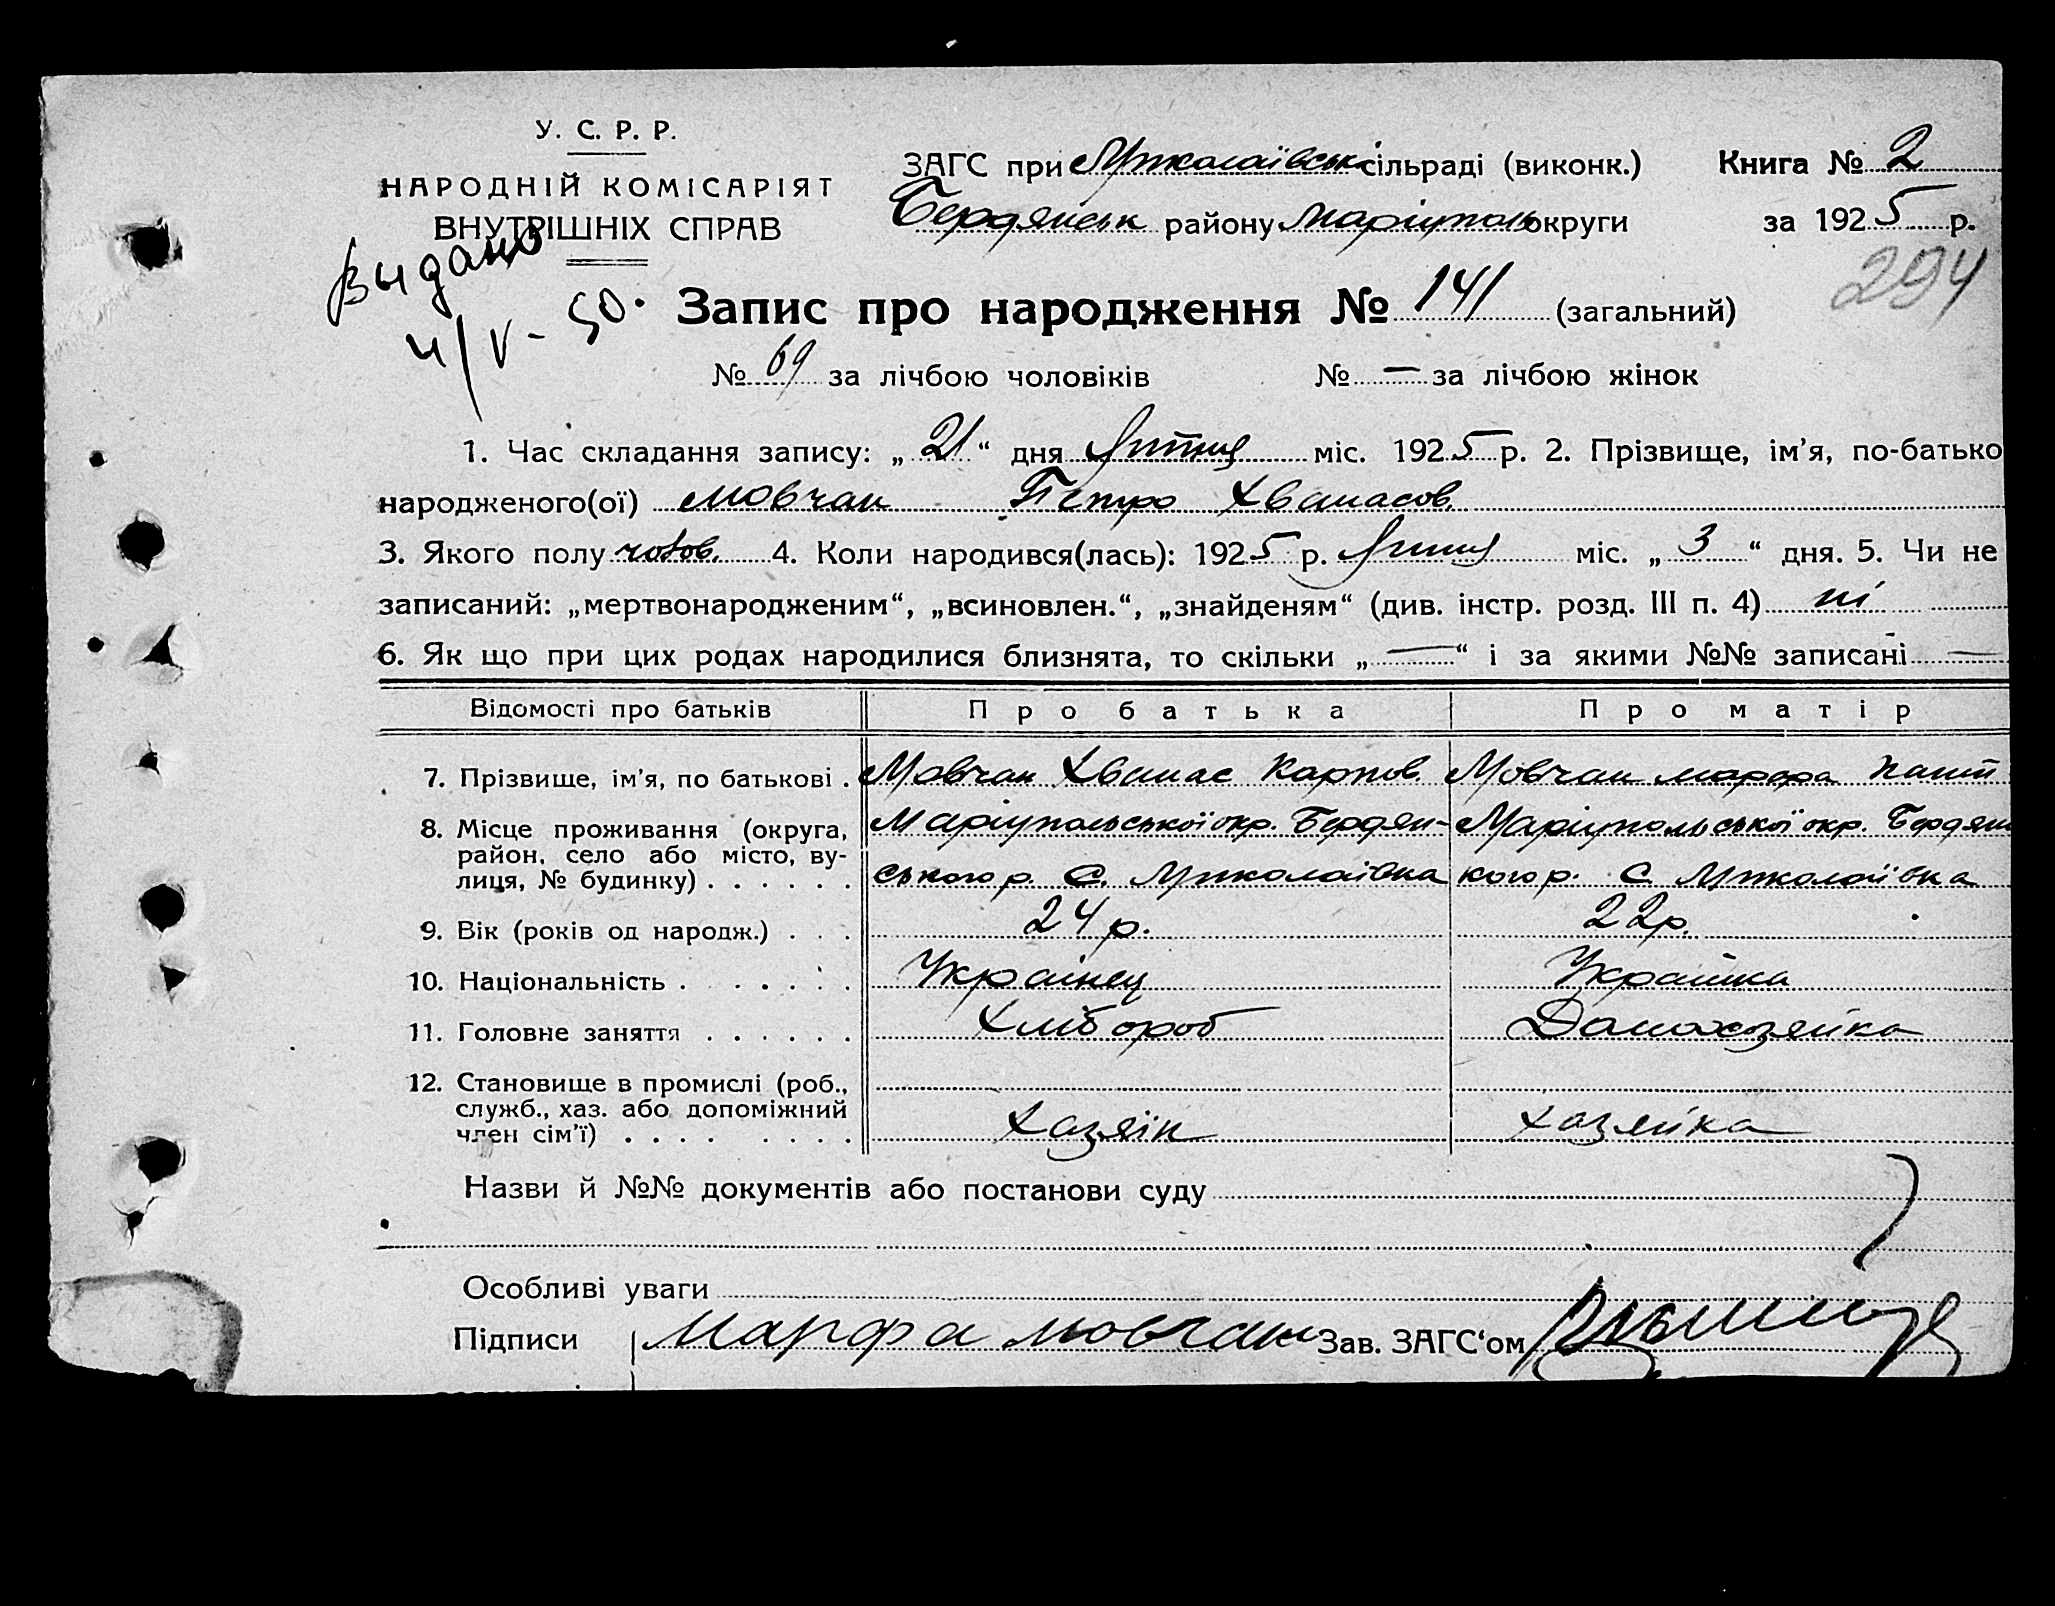 У. С. Р. Р.
НАРОДНІЙ КОМІСАРІЯТ
ВНУТРІШНІХ СПРАВ
ЗАГС при Миколаївські сільраді (виконк.) Книга № 2
Бердянськ району Маріуполь округи за 1925 р.
294
Видано
4/V - 50.
Запис про народження № 141 (загальний)
№ 69 за лічбою чоловіків № — за лічбою жінок
1. Час складання запису: „21“ дня Липця міс. 1925 р. 2. Прізвище, ім’я, по-батько
народженого(ої) Мовчан Петро Хванасов.
3. Якого полу чолов. 4. Коли народився(лась): 1925 р. Липця міс. „3“ дня. 5. Чи не
записаний: „мертвонародженим“, „всиновлен.“, „знайденям“ (див. інстр. розд. III п. 4) ні
6. Як що при цих родах народилися близнята, то скільки „—“ і за якими №№ записані —
Відомості про батьків Про батька Про матір
7. Прізвище, ім’я, по батькові . Мовчан Хванас Карпов. Мовчан Марфа
8. Місце проживання (округа, район, село або місто, вулиця, № будинку) . . . . . . Маріупольської окр. Бердян-ського р. С. Миколаївка Маріупольської окр. Бердянського р. С. Миколаївка
9. Вік (років од народж.) . . . 24 р. 22 р.
10. Національність . . . . . . Українец Українка
11. Головне заняття . . . . . . Хлібороб Домохозяйка
12. Становище в промислі (роб., служб., хаз. або допоміжний член сім’ї) . . . . . . . . Хазяїн Хазяйка
Назви й №№ документів або постанови суду
Особливі уваги
Підписи Марфа Мовчан Зав. ЗАГС‘ом